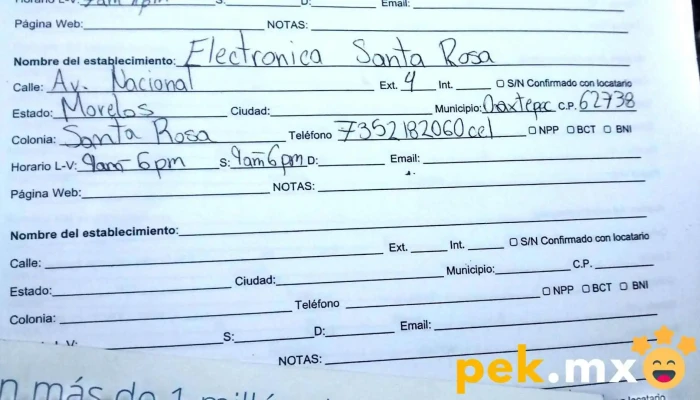 Horario L-V: 9am 6pm S: D: Email:
Página Web: NOTAS:
Nombre del establecimiento: Electronica Santa Rosa
Calle: Av. Nacional Ext. 4 Int. S/N Confirmado con locatario
Estado: Morelos Ciudad: Municipio: Oaxtepec C.P. 62738
Colonia: Santa Rosa Teléfono 7352182060 cel NPP BCT BNI
Horario L-V: 9am-6pm S: 9am-6pm D: Email:
Página Web: NOTAS:
Nombre del establecimiento:
Calle: Ext. Int. S/N Confirmado con locatario
Estado: Ciudad: Municipio: C.P.
Colonia: Teléfono NPP BCT BNI
S: D: Email:
NOTAS:
pek.mx
más de 1